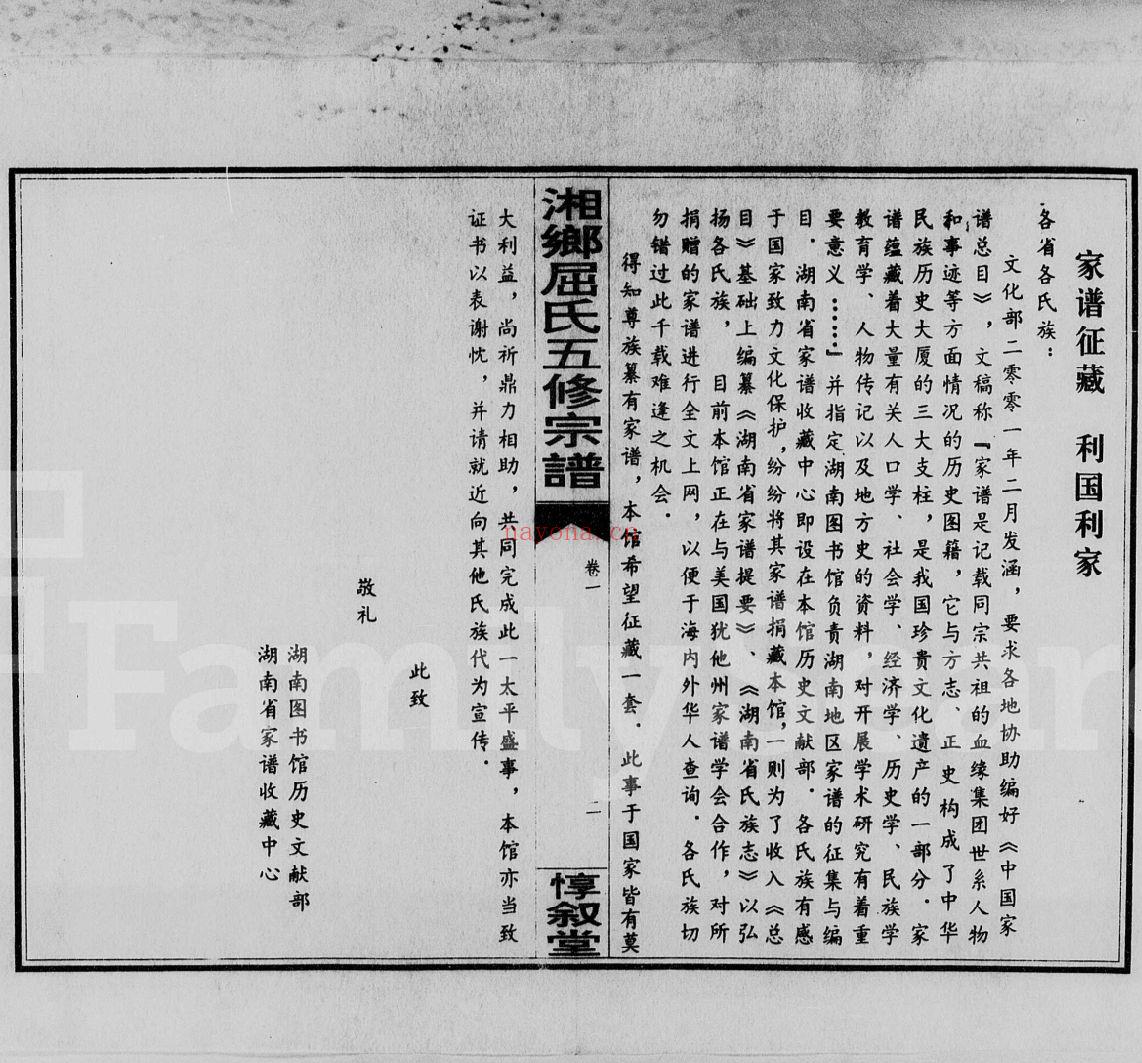 家谱征藏　利国利家
各省各氏族：
文化部二零零一年二月发涵，要求各地协助编好《中国家
谱总目》，文稿称『家谱是记载同宗共祖的血缘集团世系人物
和事迹等方面情况的历史图籍，它与方志、正史构成了中华
民族历史大厦的三大支柱，是我国珍贵文化遗产的一部分．家
谱蕴藏着大量有关人口学、社会学、经济学、历史学、民族学
教育学、人物传记以及地方史的资料，对开展学术研究有着重
要意义……』并指定湖南图书馆负责湖南地区家谱的征集与编
目．湖南省家谱收藏中心即设在本馆历史文献部．各氏族有感
于国家致力文化保护，纷纷将其家谱捐藏本馆，一则为了收入《总
目》基础上编纂《湖南省家谱提要》、《湖南省氏族志》以弘
扬各氏族，目前本馆正在与美国犹他州家谱学会合作，对所
捐赠的家谱进行全文上网，以便于海内外华人查询．各氏族切
勿错过此千载难逢之机会．
得知尊族纂有家谱，本馆希望征藏一套．此事于国家皆有莫
湘鄉屈氏五修宗譜
卷一
二
惇叙堂
大利益，尚祈鼎力相助，共同完成此一太平盛事，本馆亦当致
证书以表谢忱，并请就近向其他氏族代为宣传．
此致
敬礼
湖南图书馆历史文献部
湖南省家谱收藏中心
nayona.cn